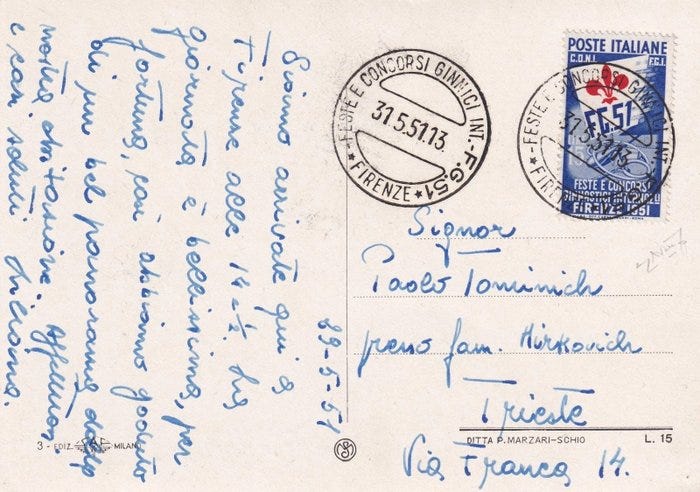 29-5-51
Siamo arrivate qui a
Firenze alle 14-½. La
giornata è bellissima, per
fortuna, così abbiamo goduto
di un bel panorama dalla
nostra abitazione. Affettuosi
e cari saluti
FESTE E CONCORSI GINNICI INT. F.G.51
31.5.51.13.
FIRENZE
POSTE ITALIANE
C.O.N.I. F.G.I.
F.G.51
FESTE E CONCORSI
GINNASTICI INTERNAZ.LI
FIRENZE 1951
FESTE E CONCORSI GINNICI INT.
31.5.51.13.
Signor
Paolo Tominich
presso fam. Mirkovich
Trieste
Via Franca 14.
3 - EDIZ. SAF MILANO
DITTA P. MARZARI-SCHIO
L. 15